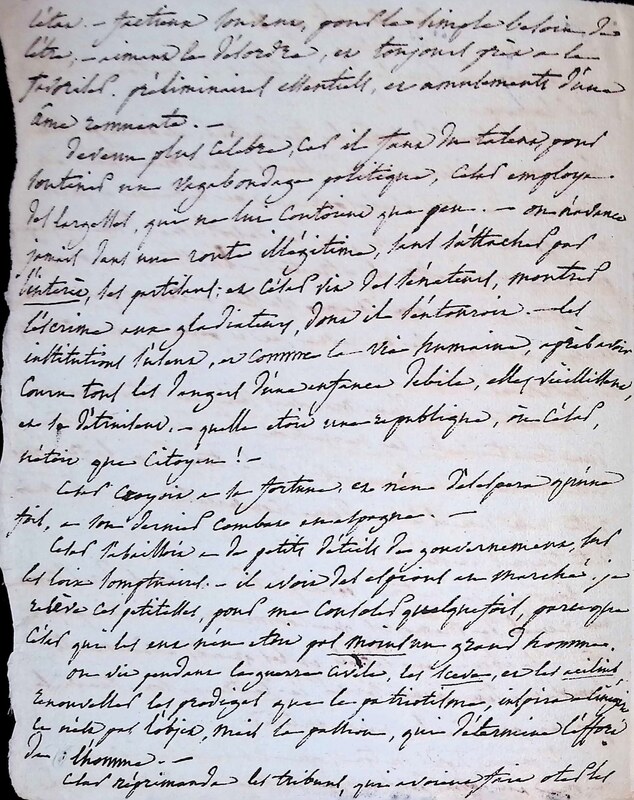 l'être, – aimant le désordre, et toujours prêt à le
favoriser. préliminaires essentiels, et amusements d'une
âme remuante. –
Devenu plus célèbre, car il faut du talent, pour
soutenir un vagabondage politique, César employa
des largesses, qui ne lui coutoient que peu. – on n'avance
jamais dans une route illégitime, sans s'attacher par
l'intérêt, ses partisans; et César vit des sénateurs, montrer
l'escrime aux gladiateurs, dont il s'entouroit. – les
institutions s'usent, et comme la vie humaine, après avoir
couru tous les dangers d'une enfance débile, elles vieillissent,
et se détruisent, – quelle étoit une république, où César,
n'étoit que Citoyen! –
César croyoit à sa fortune et n'en désespéra qu'une
fois, à son dernier combat en espagne. –
César travailloit à de petits détails de gouvernement, sur
les loix somptuaires. – il avoit des espions au marché, je
relève ces petitesses, pour me consoler quelquefois, parceque
César qui les eut n'en étoit pas moins un grand homme.
on vit pendant la guerre civile, les Sceva, et les acilius
renouveller les prodiges que le patriotisme, inspire
ce n'est pas l'objet, mais la passion, qui détermine l'effort
de l'homme. –
César réprimanda les tribuns, qui avoient fait ôter les